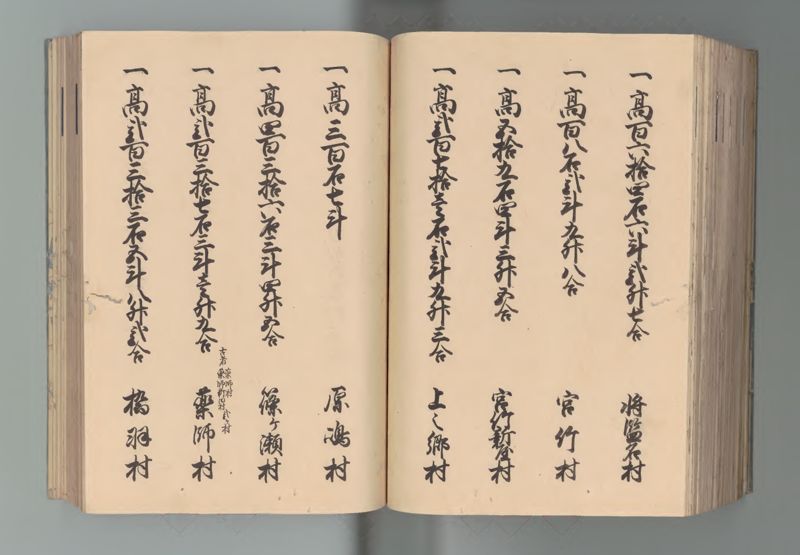 一 高百六拾四石六斗弐升七合 将監名村
一 高百八石弐斗九升八合 宮竹村
一 高五拾九石四斗三升五合 宮竹新屋村
一 高弐百七拾壱石弐斗九升三合 上之郷村
一 高三百石七斗 原嶋村
一 高四百三拾六石三斗四升五合 篠ヶ瀬村
古者 薬師村 薬師新田村
一 高弐百三拾七石三斗壱升九合 薬師村
一 高弐百三拾三石五斗八升弐合 橋羽村